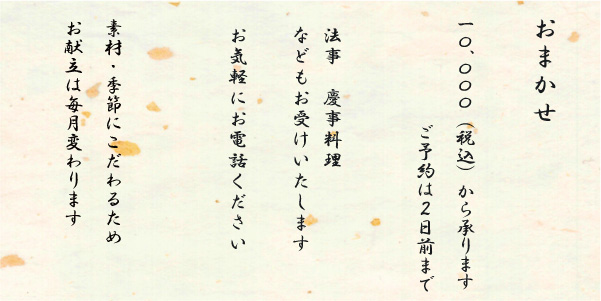 おまかせ
一〇、〇〇〇（税込）から承ります
ご予約は２日前まで
法事　慶事料理
などもお受けいたします
お気軽にお電話ください
素材・季節にこだわるため
お献立は毎月変わります